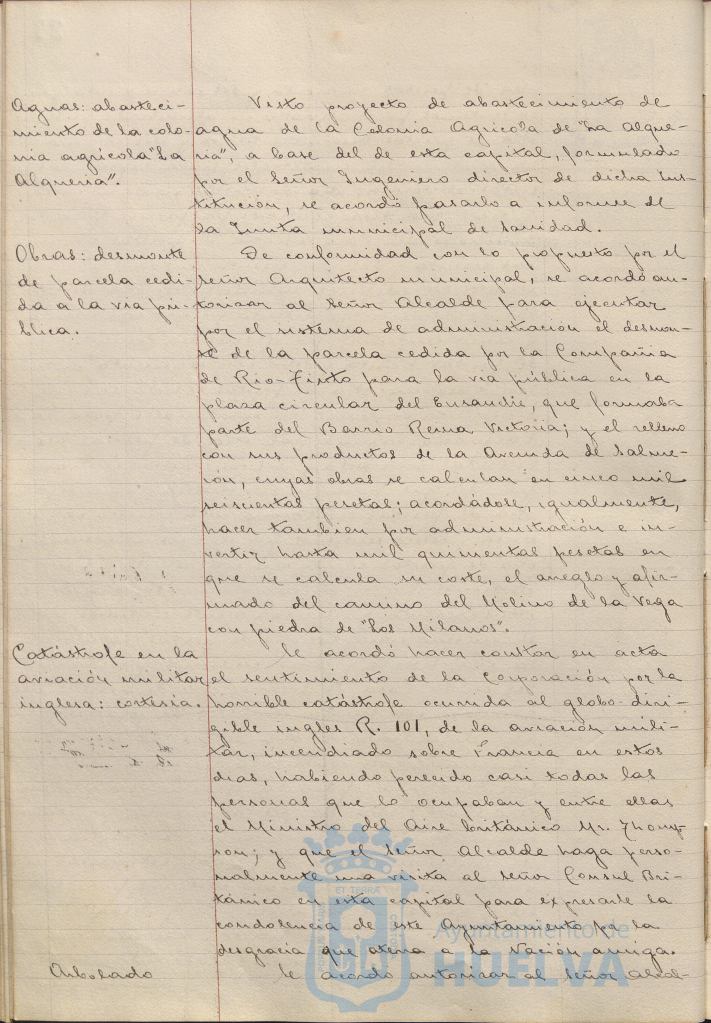 Aguas: abasteci-
miento de la colo-
nia agrícola "La
Alquería".
Visto proyecto de abastecimiento de
agua de la Colonia Agrícola de "La Alque-
ría", a base del de esta capital, formulado
por el Señor Ingeniero director de dicha Ins-
titución, se acordó pasarlo a informe de
la Junta municipal de Sanidad.
Obras: desmonte
de parcela cedi-
da a la via pú-
blica.
De conformidad con lo propuesto por el
Señor Arquitecto municipal, se acordó au-
torizar al Señor Alcalde para ejecutar
por el sistema de administración el desmon-
te de la parcela cedida por la Compañia
de Rio-Tinto para la via pública en la
plaza circular del Ensanche, que formaba
parte del Barrio Reina Victoria; y el relleno
con sus productos de la Avenida de Salme-
rón, cuyas obras se calculan en cinco mil
seiscientas pesetas; acordándose, igualmente,
hacer tambien por administración e in-
vertir hasta mil quinientas pesetas en
que se calcula su coste, el arreglo y afir-
mado del camino del Molino de la Vega
con piedra de "Los Milanos".
Catástrofe en la
aviación militar
inglesa: cortesía.
Se acordó hacer constar en acta
el sentimiento de la Corporación por la
horrible catástrofe ocurrida al globo-diri-
gible ingles R. 101, de la aviación mili-
tar, incendiado sobre Francia en estos
dias, habiendo perecido casi todas las
personas que lo ocupaban y entre ellas
el Ministro del Aire británico Mr. Thomp-
son; y que el Señor Alcalde haga perso-
nalmente una visita al Señor Consul Bri-
tánico en esta capital para expresarle la
condolencia de este Ayuntamiento por la
desgracia que aterra a la Nación amiga.
Arbolado
Se acordó autorizar al Señor Alcal-
Ayuntamiento de
HUELVA